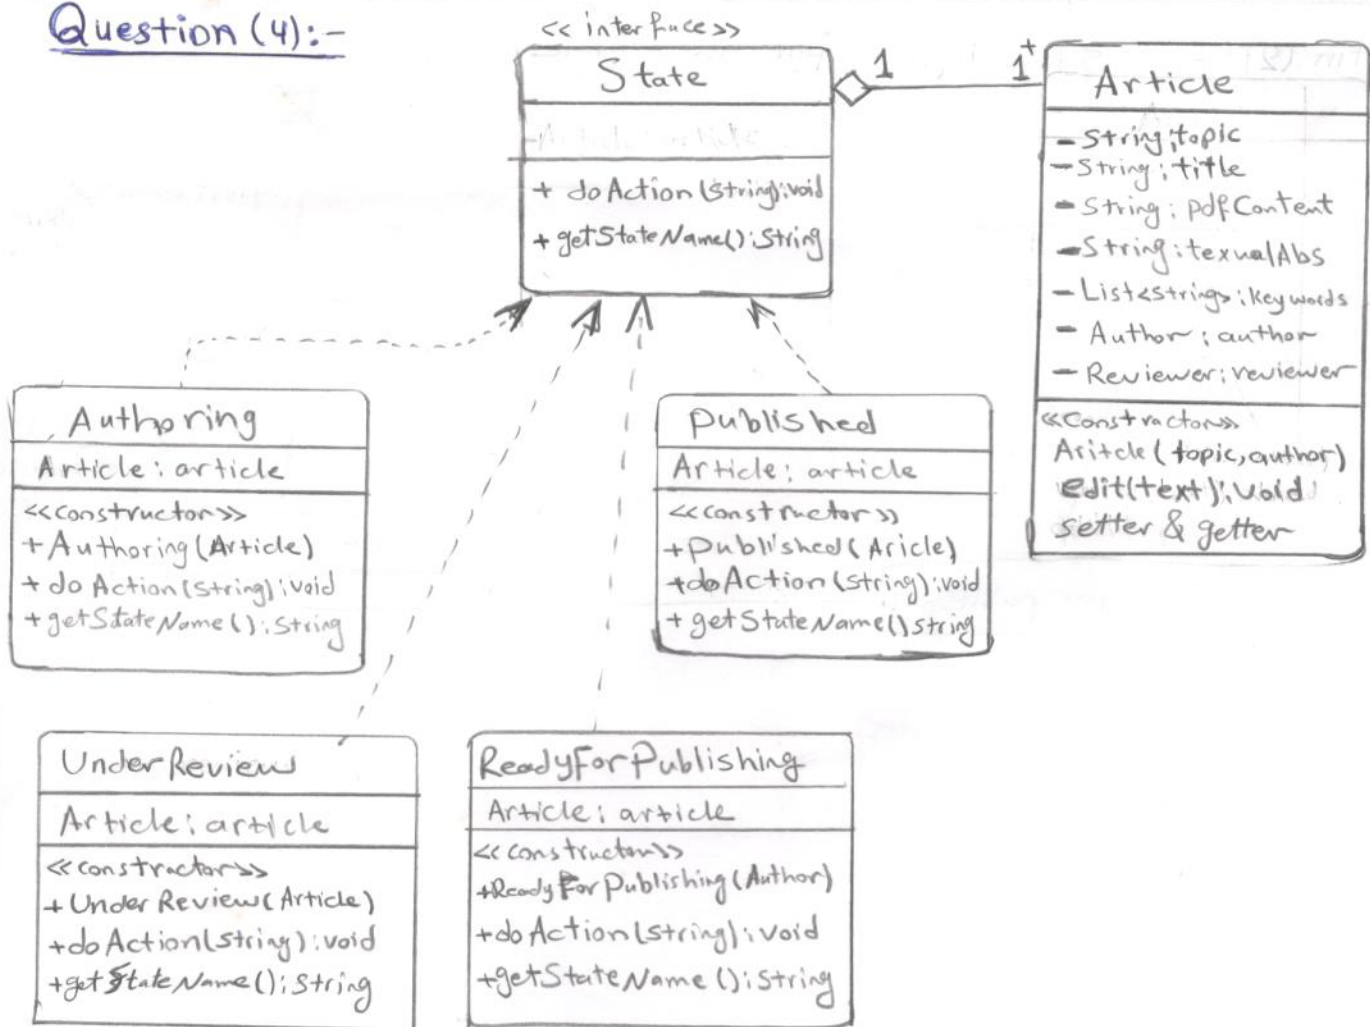 Question (4):-
<< interface >>
State
+ doAction(String):void
+ getStateName():String
1
1+
Article
- String:topic
- String:title
- String:pdfContent
- String:texualAbs
- List<String>:keywords
- Author:author
- Reviewer:reviewer
<<Constractor>>
Aritcle(topic,author)
edit(text):void
setter & getter
Authoring
Article:article
<<constructor>>
+Authoring(Article)
+doAction(String):void
+getStateName():String
Published
Article:article
<<constructor>>
+Published(Aricle)
+doAction(String):void
+getStateName()String
UnderReview
Article:article
<<constractor>>
+UnderReview(Article)
+doAction(String):void
+getStateName():String
ReadyForPublishing
Article:article
<<constructor>>
+ReadyForPublishing(Author)
+doAction(String):void
+getStateName():String